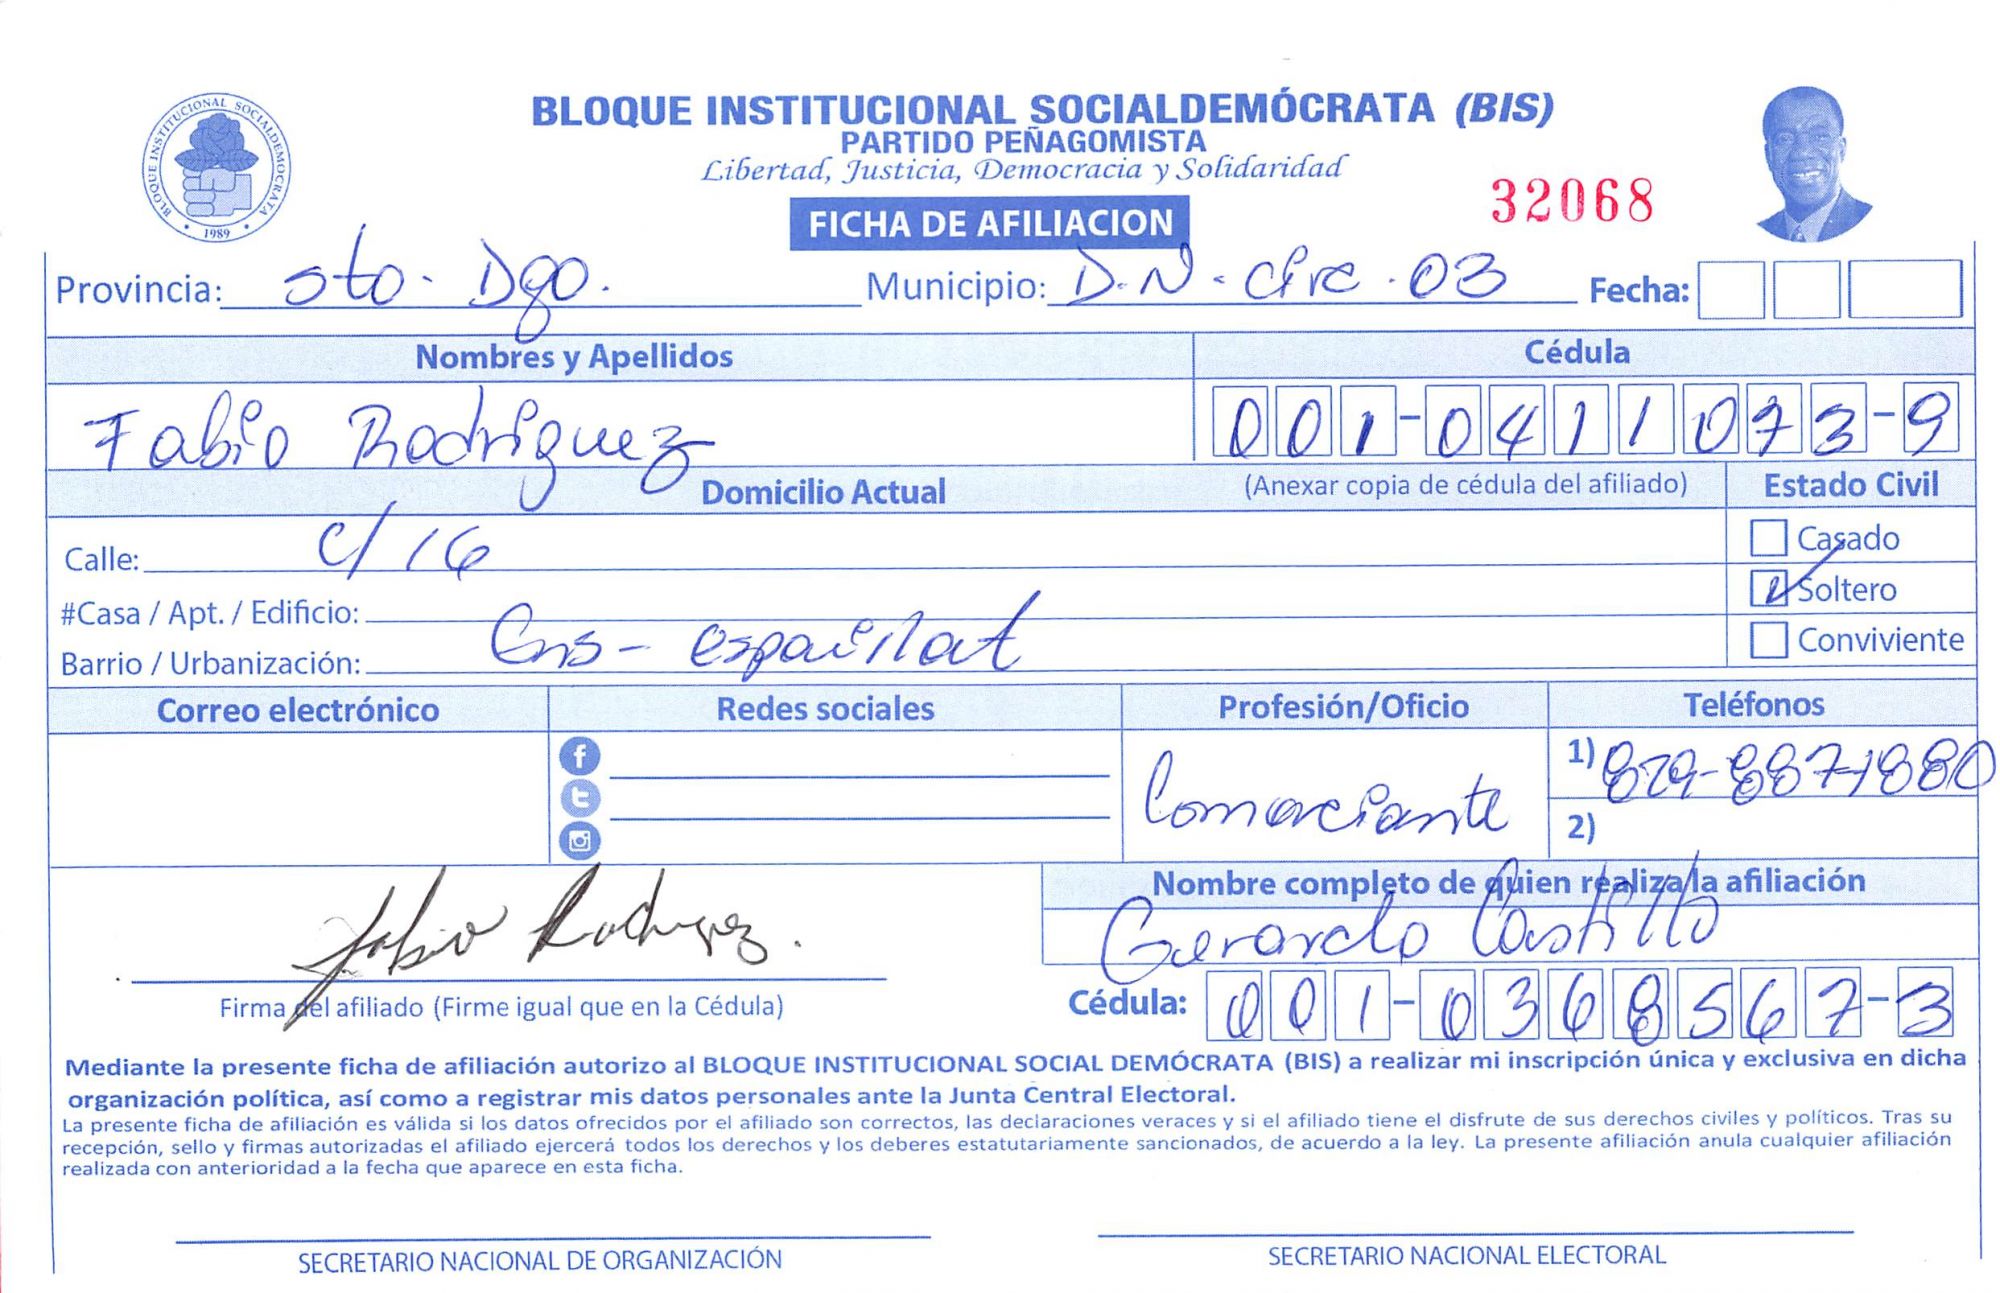 BLOQUE INSTITUCIONAL SOCIALDEMÓCRATA (BIS)
PARTIDO PEÑAGOMISTA
Libertad, Justicia, Democracia y Solidaridad
BLOQUE INSTITUCIONAL SOCIALDEMOCRATA
1989
32068
FICHA DE AFILIACION
Provincia: Sto. Dgo. Municipio: D.N. Circ. 03 Fecha:
Nombres y Apellidos Cédula
Fabio Rodriguez 001-0411073-9
Domicilio Actual (Anexar copia de cédula del afiliado) Estado Civil
Calle: C/ 16 Casado
Soltero
#Casa / Apt. / Edificio:
Barrio / Urbanización: Ens- espaillat Conviviente
Correo electrónico Redes sociales Profesión/Oficio Teléfonos
Comerciante 1) 829-887-1880
2)
Nombre completo de quien realiza la afiliación
Fabio Rodriguez. Gerardo Castillo
Firma del afiliado (Firme igual que en la Cédula) Cédula: 001-0368567-3
Mediante la presente ficha de afiliación autorizo al BLOQUE INSTITUCIONAL SOCIAL DEMÓCRATA (BIS) a realizar mi inscripción única y exclusiva en dicha
organización política, así como a registrar mis datos personales ante la Junta Central Electoral.
La presente ficha de afiliación es válida si los datos ofrecidos por el afiliado son correctos, las declaraciones veraces y si el afiliado tiene el disfrute de sus derechos civiles y políticos. Tras su
recepción, sello y firmas autorizadas el afiliado ejercerá todos los derechos y los deberes estatutariamente sancionados, de acuerdo a la ley. La presente afiliación anula cualquier afiliación
realizada con anterioridad a la fecha que aparece en esta ficha.
SECRETARIO NACIONAL DE ORGANIZACIÓN SECRETARIO NACIONAL ELECTORAL